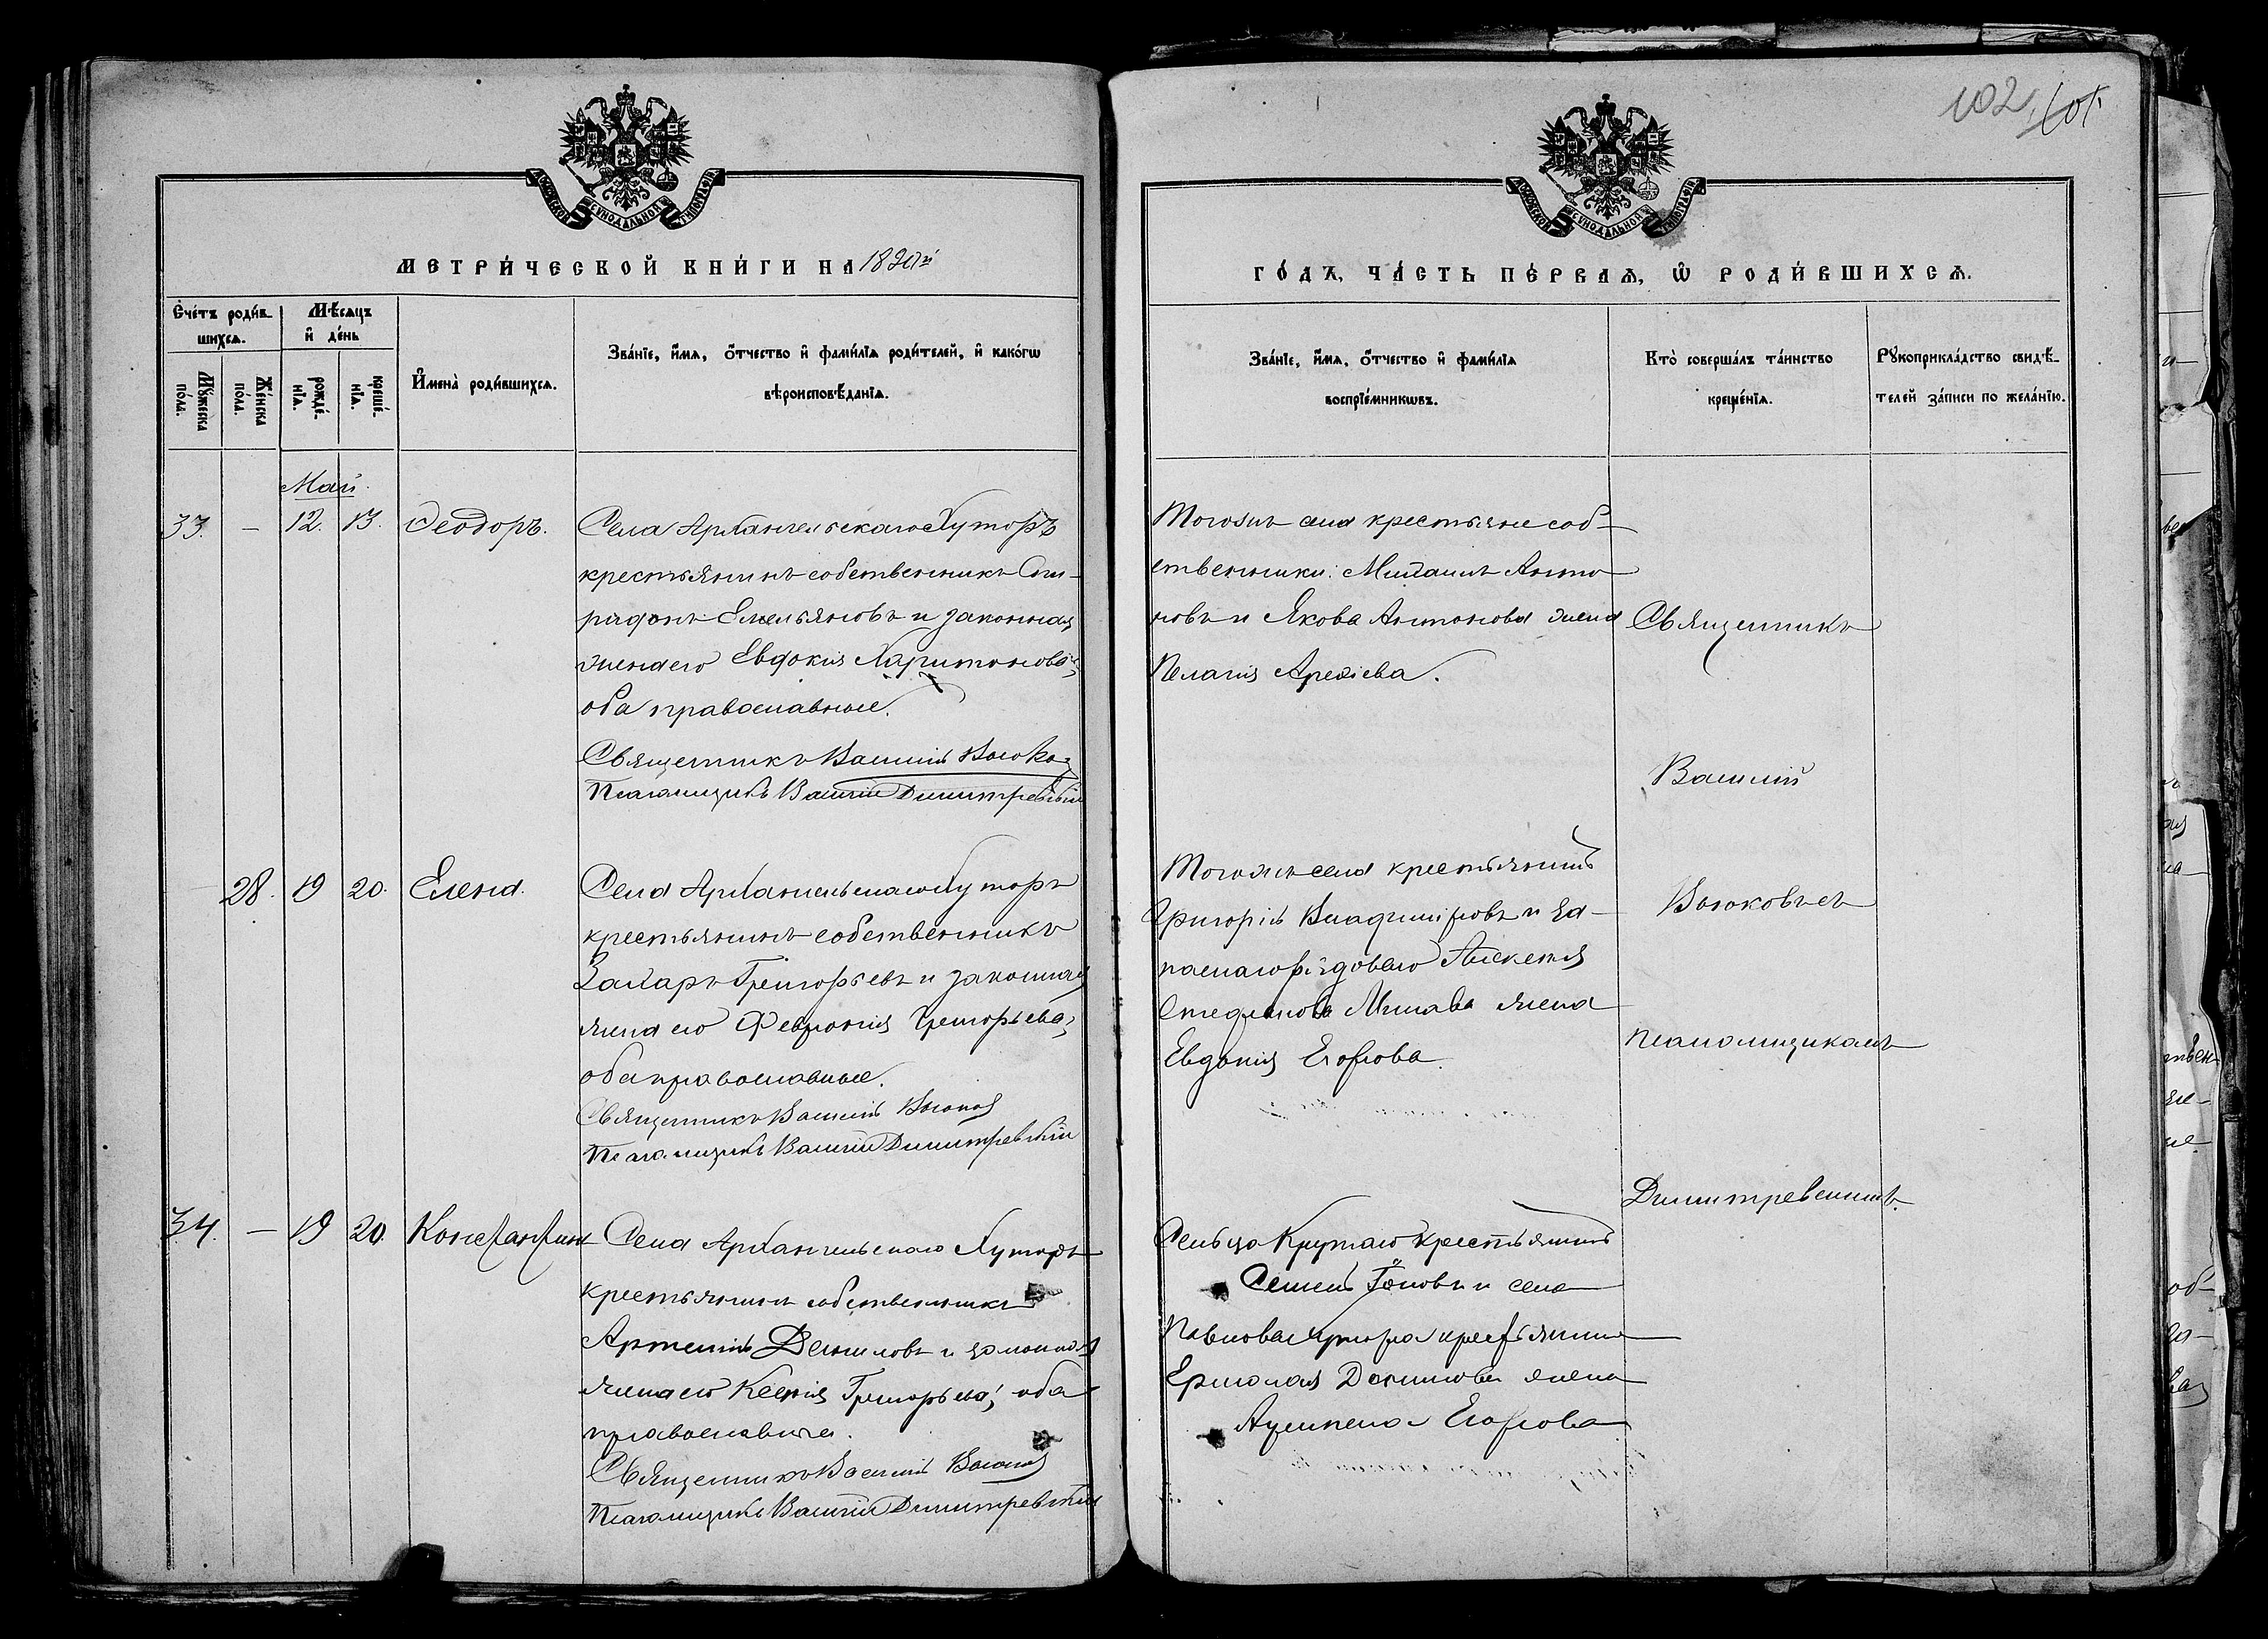 102 101
МОСКОВСКОЙ СѴНОДАЛЬНОЙ ТИПОГРАФІИ
МЕТРИ́ЧЕСКОЙ КНИ́ГИ НА 18
Счéтъ роди́в-
шихся.
Мѣ́сяцъ
и҆ де́нь
Мꙋ́жеска
по́ла.
Же́нска
по́ла.
рожде́-
нїѧ.
креще́-
нїѧ.
И҆мена̀ роди́вшихсѧ.
Зва́нїе, и҆́мѧ, ѻ҆́тчество и҆ фами́лїѧ роди́телей, и҆ како́гѡ
вѣроисповѣ́данїѧ.
Май.
33. — 12. 13. Ѳеодоръ.
Села Архангельскаго Хуторъ
крестьянинъ собственникъ Спи-
ридонъ Емельяновъ и законная
жена его Евдокія Харитонова;
оба православные.
Священникъ Василій
Псаломщикъ Василій Димитревскій
28. 19 20. Елена.
Села Архангельскаго Хуторъ
крестьянинъ собственникъ
Захаръ Григорьевъ и законная
жена его Феврониѧ Григорьева;
оба православные.
Священникъ Василій
Псаломщикъ Василій Димитревскій
34. — 19 20. Константинъ
Села Архангельскаго Хуторъ
крестьянинъ собственникъ
Артемій Даниловъ и законная
жена его Ксенія Григорьева; оба
православные.
Священникъ Василій
Псаломщикъ Василій Димитревскій
МОСКОВСКОЙ СѴНОДАЛЬНОЙ ТИПОГРАФІИ
ГО́ДЪ, ЧА́СТЬ ПЕ́РВАѦ, Ѽ РОДИ́ВШИХСѦ.
Зва́нїе, и҆́мѧ, ѻ҆́тчество и҆ фами́лїѧ
воспрїе́мникѡвъ.
Кто̀ соверша́лъ та́инство
креще́нїѧ.
Рꙋкоприкла́дство свидѣ́-
телей за́писи по жела́нїю.
Тогожъ села крестьяне соб-
ственники: Михаилъ Анто-
новъ и Якова Антонова жена
Пелагія Арефіева.
Тогожъ села крестьянинъ
Григорій Владиміровъ и за-
паснаго рядоваго
Михаева жена
Евдокія Егорова.
Сельца Крутаго крестьянинъ
Семенъ и села
Павлова Хутора крестьянина
Ермолая Данилова жена
Акулина Егорова
Священникъ
Василій
псаломщикомъ
Димитревскимъ.